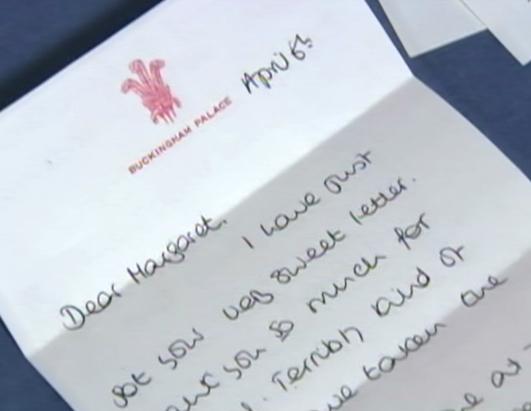 April 6th
BUCKINGHAM PALACE
Dear Margaret,
I have just
got your very sweet letter.
you so much for
Terribly kind of
taken the